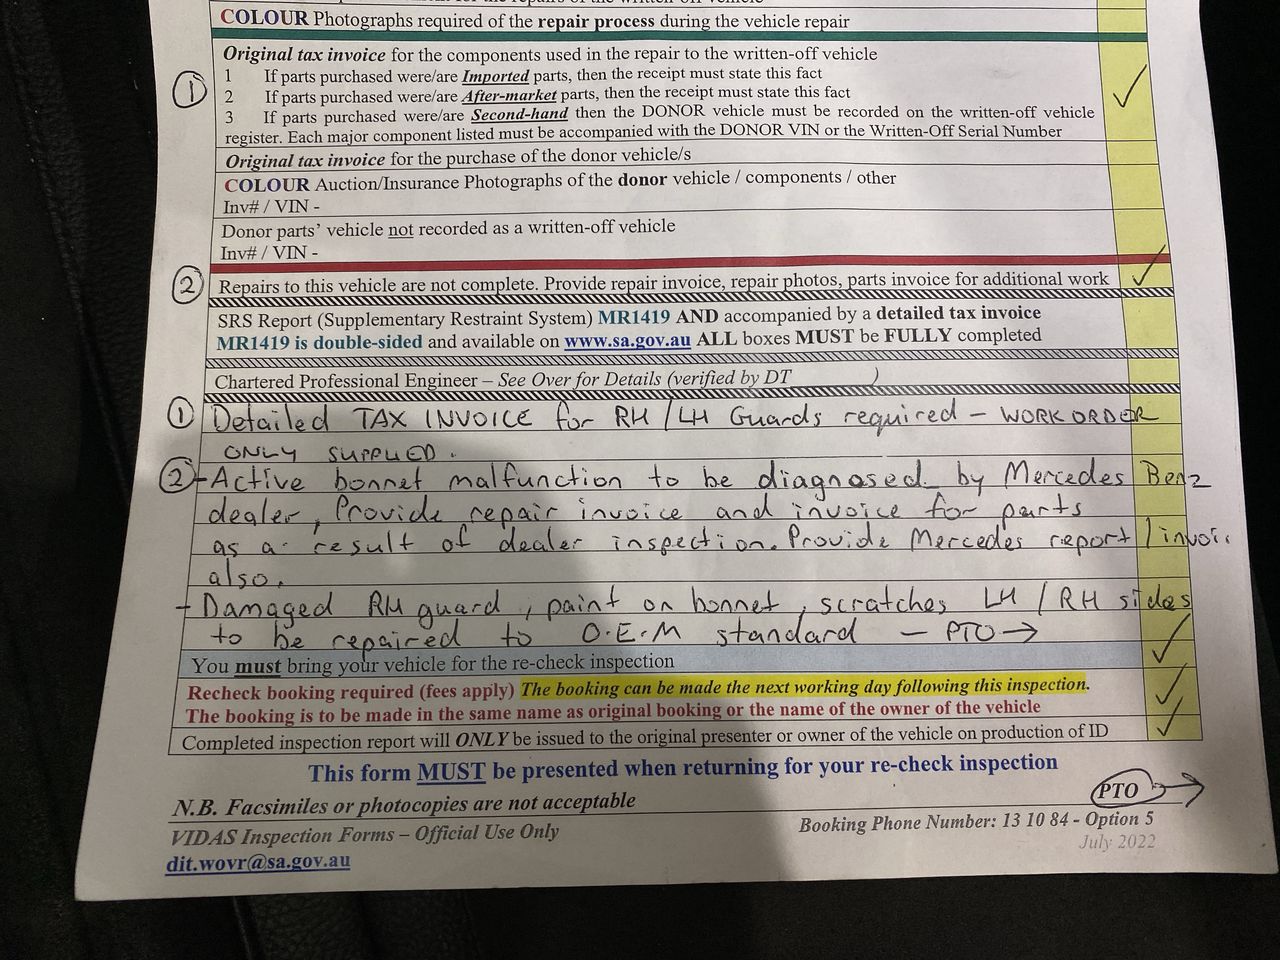 COLOUR Photographs required of the repair process during the vehicle repair
Original tax invoice for the components used in the repair to the written-off vehicle
① 1 If parts purchased were/are Imported parts, then the receipt must state this fact
2 If parts purchased were/are After-market parts, then the receipt must state this fact
3 If parts purchased were/are Second-hand then the DONOR vehicle must be recorded on the written-off vehicle
register. Each major component listed must be accompanied with the DONOR VIN or the Written-Off Serial Number
Original tax invoice for the purchase of the donor vehicle/s
COLOUR Auction/Insurance Photographs of the donor vehicle / components / other
Inv# / VIN -
Donor parts' vehicle not recorded as a written-off vehicle
Inv# / VIN -
② Repairs to this vehicle are not complete. Provide repair invoice, repair photos, parts invoice for additional work
SRS Report (Supplementary Restraint System) MR1419 AND accompanied by a detailed tax invoice
MR1419 is double-sided and available on www.sa.gov.au ALL boxes MUST be FULLY completed
Chartered Professional Engineer – See Over for Details (verified by DT )
① Detailed TAX INVOICE for RH / LH Guards required – WORK ORDER
ONLY SUPPLIED.
② - Active bonnet malfunction to be diagnosed by Mercedes Benz
dealer, Provide repair invoice and invoice for parts
as a result of dealer inspection. Provide Mercedes report /
also.
- Damaged RH guard, paint on bonnet, scratches LH / RH sides
to be repaired to O.E.M standard – PTO →
You must bring your vehicle for the re-check inspection
Recheck booking required (fees apply) The booking can be made the next working day following this inspection.
The booking is to be made in the same name as original booking or the name of the owner of the vehicle
Completed inspection report will ONLY be issued to the original presenter or owner of the vehicle on production of ID
This form MUST be presented when returning for your re-check inspection
PTO →
N.B. Facsimiles or photocopies are not acceptable
VIDAS Inspection Forms – Official Use Only
Booking Phone Number: 13 10 84 - Option 5
July 2022
dit.wovr@sa.gov.au